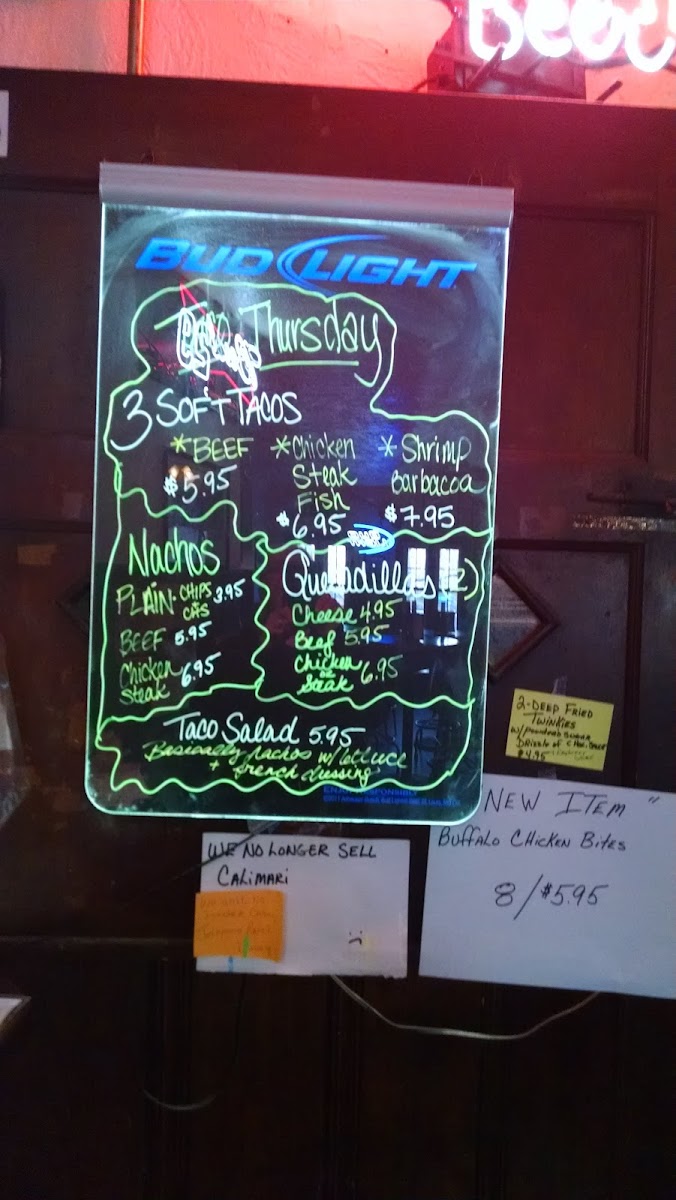 Beer
BUD LIGHT
Thursday
3 SOFT TACOS
*BEEF
$5.95
*Chicken
Steak
Fish
$6.95
*Shrimp
Barbacoa
$7.95
Nachos
PLAIN-CHIPS 3.95
BEEF 5.95
Chicken
Steak 6.95
Quesadillas (2)
Cheese 4.95
Beef 5.95
Chicken
or
Steak 6.95
Taco Salad 5.95
Basically Nachos w/ lettuce
+ french dressing
2-DEEP FRIED
TWINKIES
W/ POWDERED SUGAR
DRIZZLE OF CHOC. SAUCE
$4.95
WE NO LONGER SELL
CALIMARI
:(
NEW ITEM "
BUFFALO CHICKEN BITES
8/$5.95